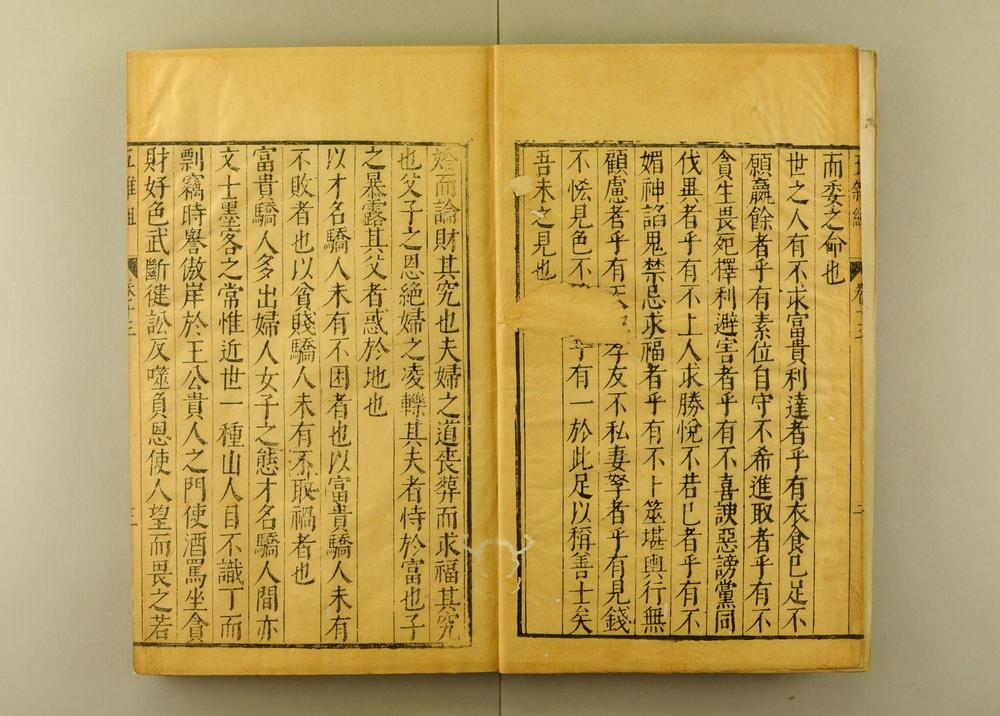 而委之命也
世之人有不求富貴利達者乎有衣食已足不
願贏餘者乎有素位自守不希進取者乎有不
貪生畏死擇利避害者乎有不喜諛惡謗黨同
伐異者乎有不上人求勝悅不若已者乎有不
媚神諂鬼禁忌求福者乎有不卜筮堪輿行無
顧慮者乎有天 孝友不私妻孥者乎有見錢
不恡見色不 乎有一於此足以稱善士矣
吾未之見也
婚而論財其究也夫婦之道喪葬而求福其究
也父子之恩絕婦之凌轢其夫者恃於富也子
之暴露其父者惑於地也
以才名驕人未有不困者也以富貴驕人未有
不敗者也以貧賤驕人未有不取禍者也
富貴驕人多出婦人女子之態才名驕人間亦
文士墨客之常惟近世一種山人目不識丁而
剽竊時譽傲岸於王公貴人之門使酒罵坐貪
財好色武斷健訟反噬負恩使人望而畏之若
五雜俎 卷十三 三